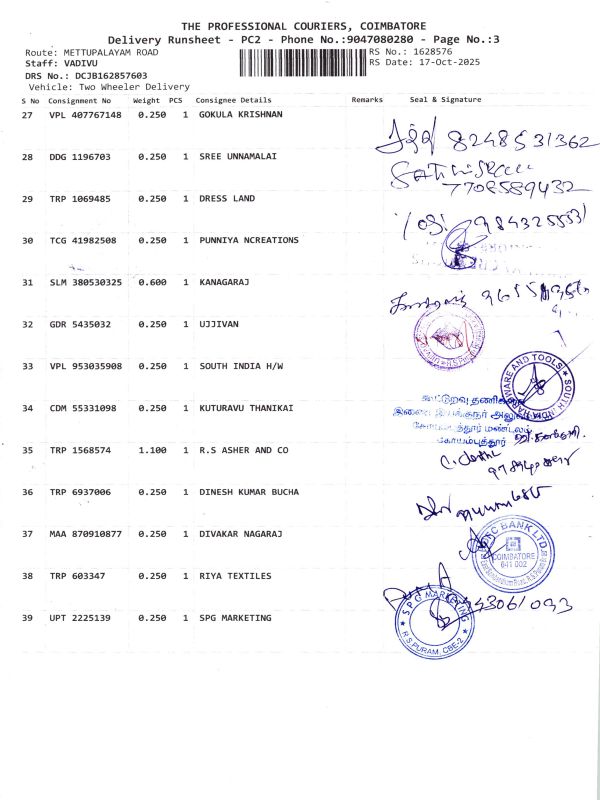 THE PROFESSIONAL COURIERS, COIMBATORE
Delivery Runsheet - PC2 - Phone No.:9047080280 - Page No.:3
Route: METTUPALAYAM ROAD
RS No.: 1628576
Staff: VADIVU
RS Date: 17-Oct-2025
DRS No.: DCJB162857603
Vehicle: Two Wheeler Delivery
S No Consignment No Weight PCS Consignee Details Remarks Seal & Signature
27 VPL 407767148 0.250 1 GOKULA KRISHNAN
8248531362
28 DDG 1196703 0.250 1 SREE UNNAMALAI
7708589432
29 TRP 1069485 0.250 1 DRESS LAND
30 TCG 41982508 0.250 1 PUNNIYA NCREATIONS
31 SLM 380530325 0.600 1 KANAGARAJ
32 GDR 5435032 0.250 1 UJJIVAN
33 VPL 953035908 0.250 1 SOUTH INDIA H/W
SOUTH INDIA HARDWARE AND TOOLS
34 CDM 55331098 0.250 1 KUTURAVU THANIKAI
கூட்டுறவு தணிக்கை
இணை இயக்குநர் அலுவலகம்
கோயம்புத்தூர் மண்டலம்
கோயம்புத்தூர்
35 TRP 1568574 1.100 1 R.S ASHER AND CO
36 TRP 6937006 0.250 1 DINESH KUMAR BUCHA
37 MAA 870910877 0.250 1 DIVAKAR NAGARAJ
BANK LTD
COIMBATORE
641 002
38 TRP 603347 0.250 1 RIYA TEXTILES
39 UPT 2225139 0.250 1 SPG MARKETING
SPG MARKETING
R.S PURAM, CBE-2